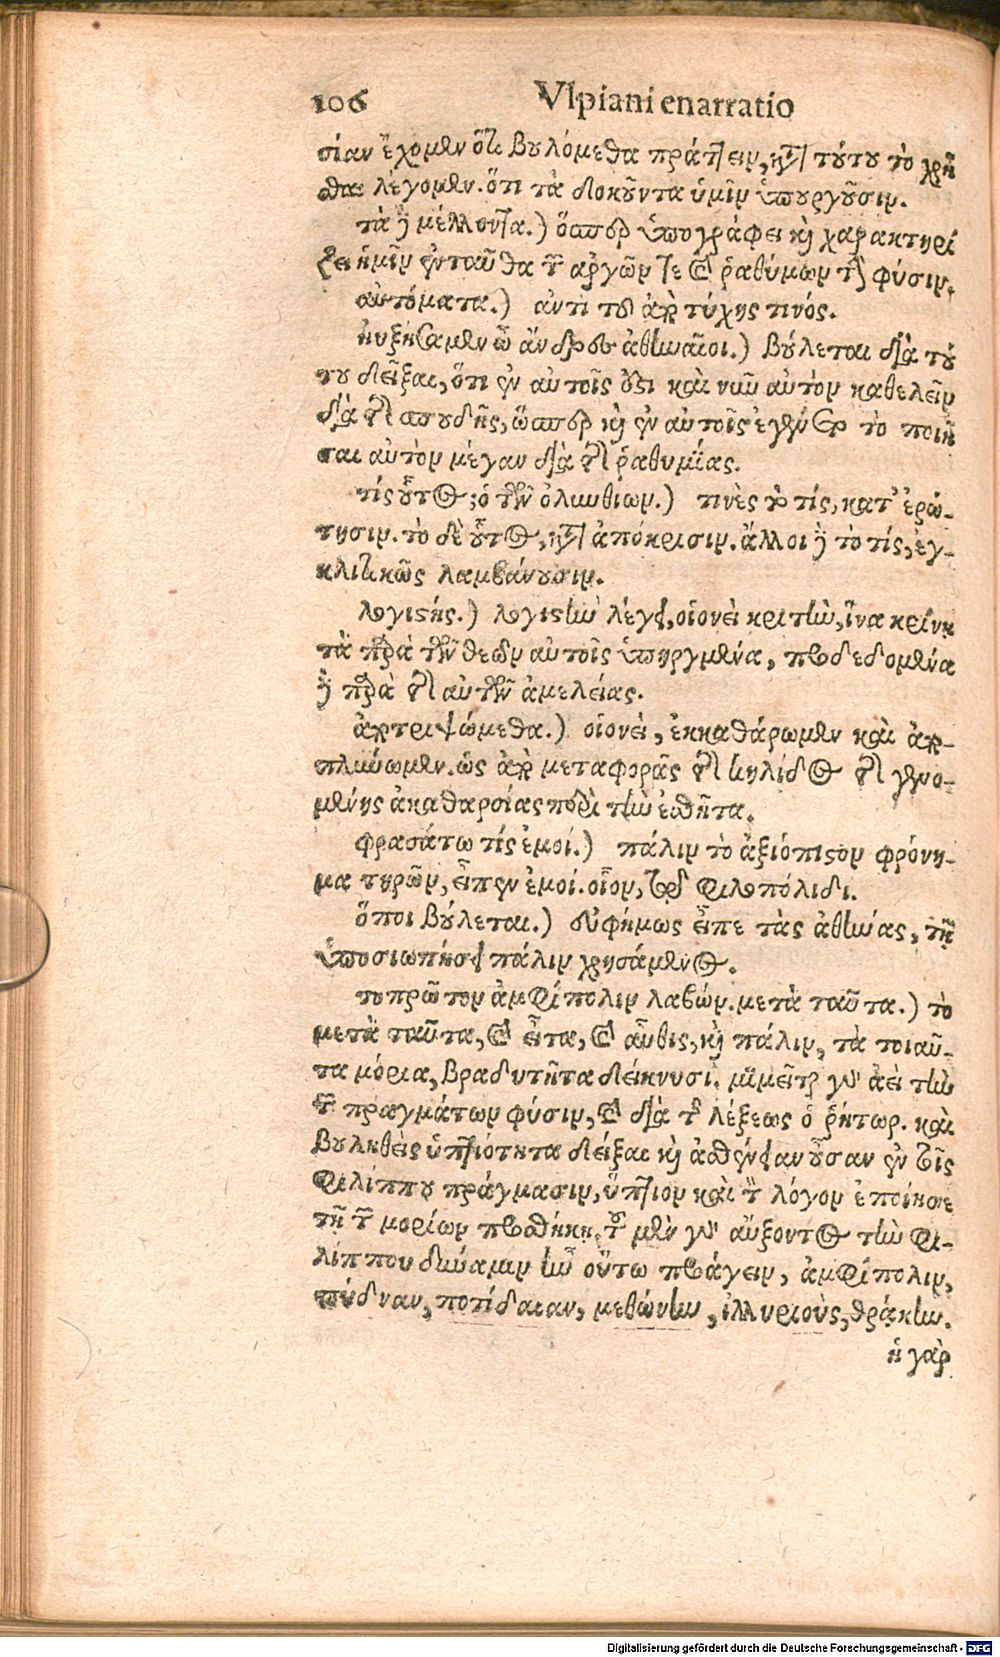 106 Vlpiani enarratio
σίαν ἔχομεν ὅτι βουλόμεθα πράττειν, κατὰ τούτου τὸ χρῆ
σθαι λέγομεν. ὅτι τὰ δοκοῦντα ὑμῖν ὑπουργοῦσιν.
τὰ δὲ μέλλοντα.) ὅπερ ὑπογράφει καὶ χαρακτηρί
ζει ἡμῖν ἐνταῦθα τῶν ἀργῶν τε καὶ ῥαθύμων τὴν φύσιν.
αὐτόματα.) ἀντὶ τοῦ ἀπὸ τύχης τινός.
ηὐξήσαμεν ὦ ἄνδρες ἀθηναῖοι.) βούλεται διὰ τού
του δεῖξαι, ὅτι ἐν αὐτοῖς ἐστι καὶ νῦν αὐτὸν καθελεῖν
διὰ τῆς σπουδῆς, ὥσπερ καὶ ἐν αὐτοῖς ἐγένετο τὸ ποιῆ
σαι αὐτὸν μέγαν διὰ τῆς ῥαθυμίας.
τίς οὗτος; ὁ τῶν ὀλυνθίων.) τινὲς τὸ τίς, κατ' ἐρώ-
τησιν. τὸ δὲ οὗτος, κατὰ ἀπόκρισιν. ἄλλοι δὲ τὸ τίς, ἐγ-
κλιτικῶς λαμβάνουσιν.
λογιστής.) λογιστὴν λέγει, οἱονεὶ κριτὴν, ἵνα κρίνῃ
τὰ παρὰ τῶν θεῶν αὐτοῖς ὑπηργμένα, προδεδομένα
δὲ παρὰ τῆς αὐτῶν ἀμελείας.
ἀποτριψώμεθα.) οἱονεὶ, ἐκκαθάρωμεν καὶ ἀπο-
πλυνώμεν. ὡς ἀπὸ μεταφορᾶς τῆς κηλίδος τῆς γενο-
μένης ἀκαθαρσίας περὶ τὴν ἐσθῆτα.
φρασάτω τίς ἐμοί.) πάλιν τὸ ἀξιόπιστον φρόνη-
μα τηρῶν, εἶπεν ἐμοί. οἷον, τῷ φιλοπόλιδι.
ὅποι βούλεται.) εὐφήμως εἶπε τὰς ἀθήνας, τῇ
ὑποσιωπήσει πάλιν χρησάμενος.
τὸ πρῶτον ἀμφίπολιν λαβών. μετὰ ταῦτα.) τὸ
μετὰ ταῦτα, καὶ εἶτα, καὶ αὖθις, καὶ πάλιν, τὰ τοιαῦ-
τα μόρια, βραδυτῆτα δείκνυσι. μιμεῖται γὰρ ἀεὶ τὴν
τῶν πραγμάτων φύσιν, καὶ διὰ τῆς λέξεως ὁ ῥήτωρ. καὶ
βουληθεὶς ὑπτιότητα δεῖξαι καὶ ἀσθένειαν οὖσαν ἐν τοῖς
φιλίππου πράγμασιν, ὕπτιον καὶ τὸν λόγον ἐποίησε
τῇ τῶν μορίων προσθήκῃ. τοῦ μὲν γὰρ αὔξοντος τὴν φι-
λίππου δύναμιν ἦν οὕτω προάγειν, ἀμφίπολιν,
πύδναν, ποτίδαιαν, μεθώνην, ἰλλυριοὺς, θρᾴκην.
ἡ γὰρ
Digitalisierung gefördert durch die Deutsche Forschungsgemeinschaft - DFG